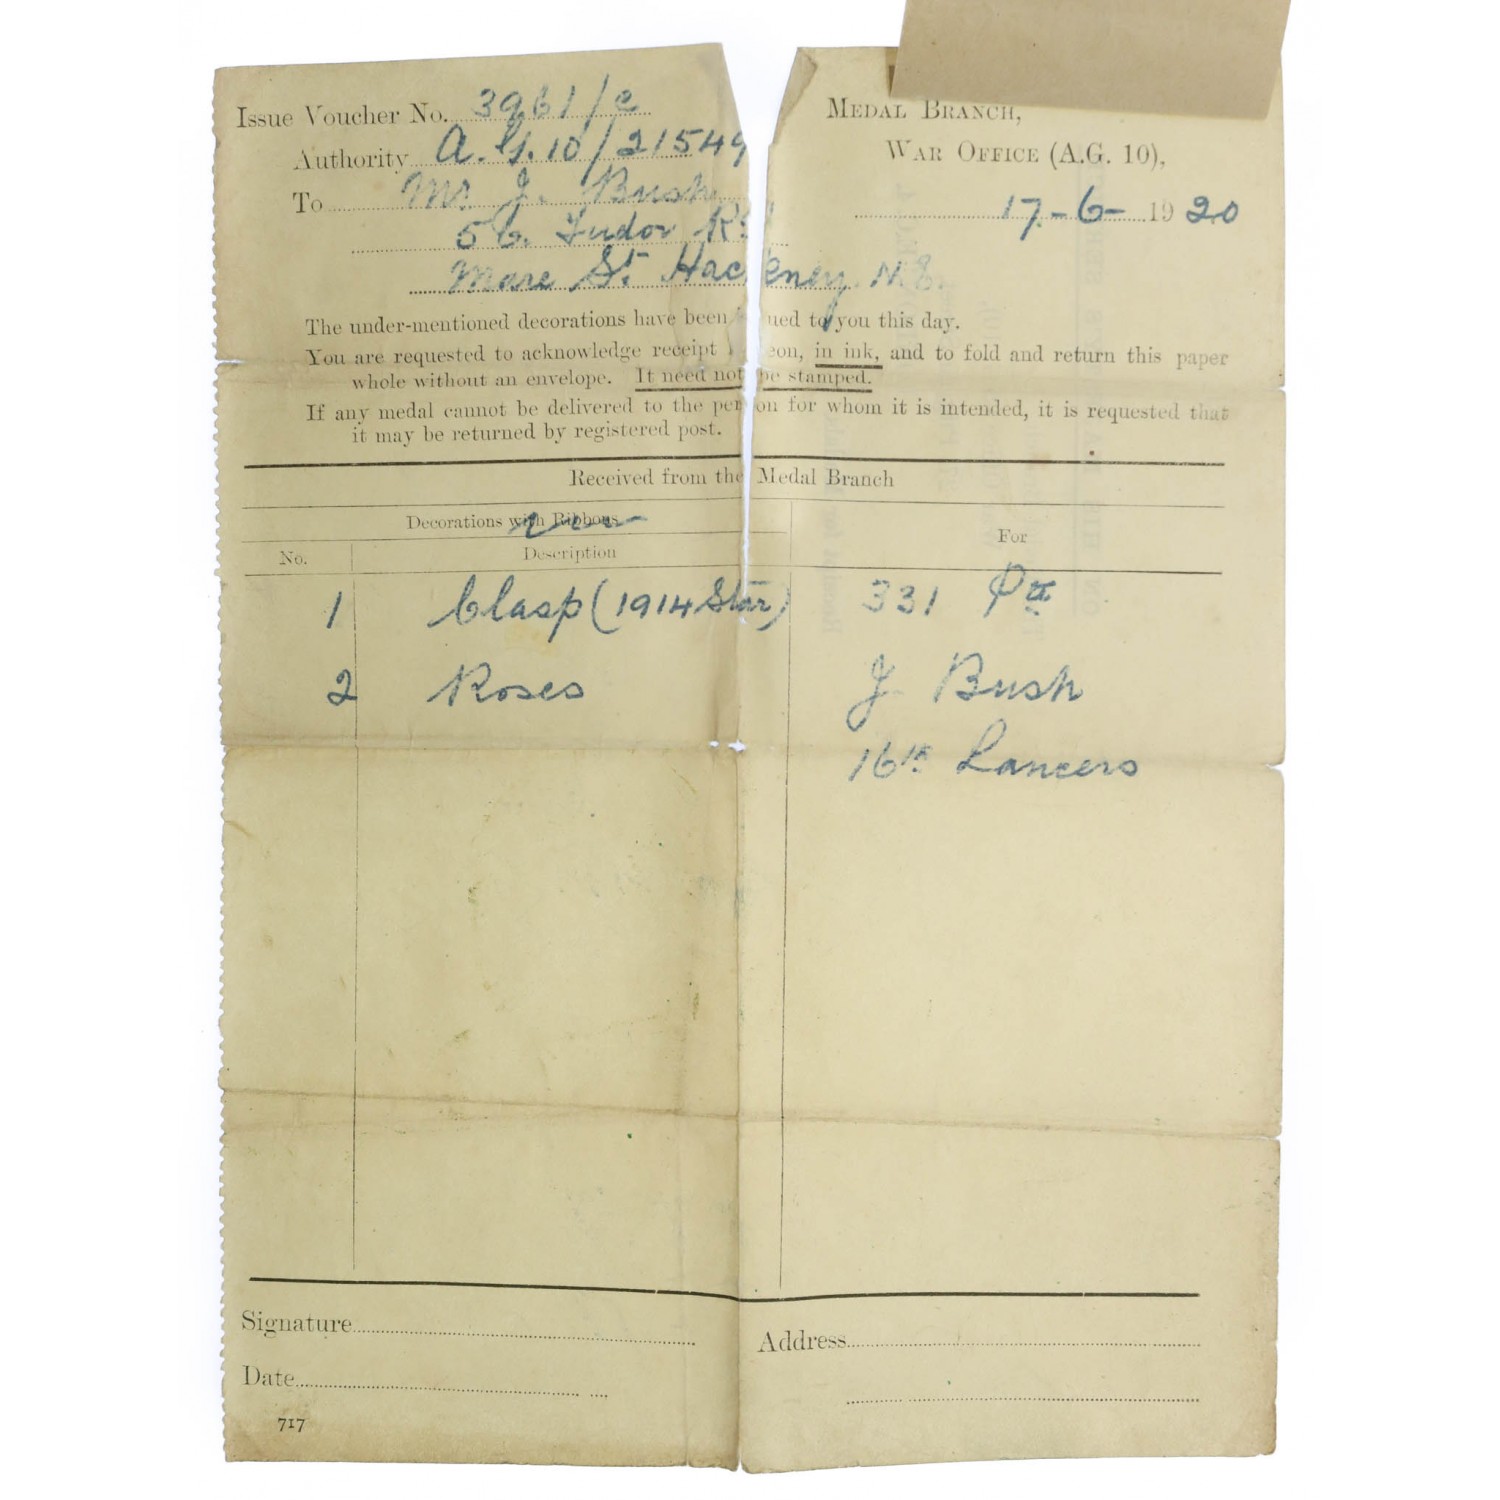 Issue Voucher No. 3961/2
Authority A.G.10/21549
To Mr J. Bush
56. Tudor Rd
Mare St. Hackney. N.E.
MEDAL BRANCH,
WAR OFFICE (A.G. 10),
17-6- 1920
The under-mentioned decorations have been ued to you this day.
You are requested to acknowledge receipt eon, in ink, and to fold and return this paper
whole without an envelope. It need not be stamped.
If any medal cannot be delivered to the per on for whom it is intended, it is requested that
it may be returned by registered post.
Received from the Medal Branch
Decorations with Ribbons
For
No. Description
1 Clasp (1914 Star) 331 Pte
2 Roses J Bush
16th Lancers
Signature
Address
Date
717